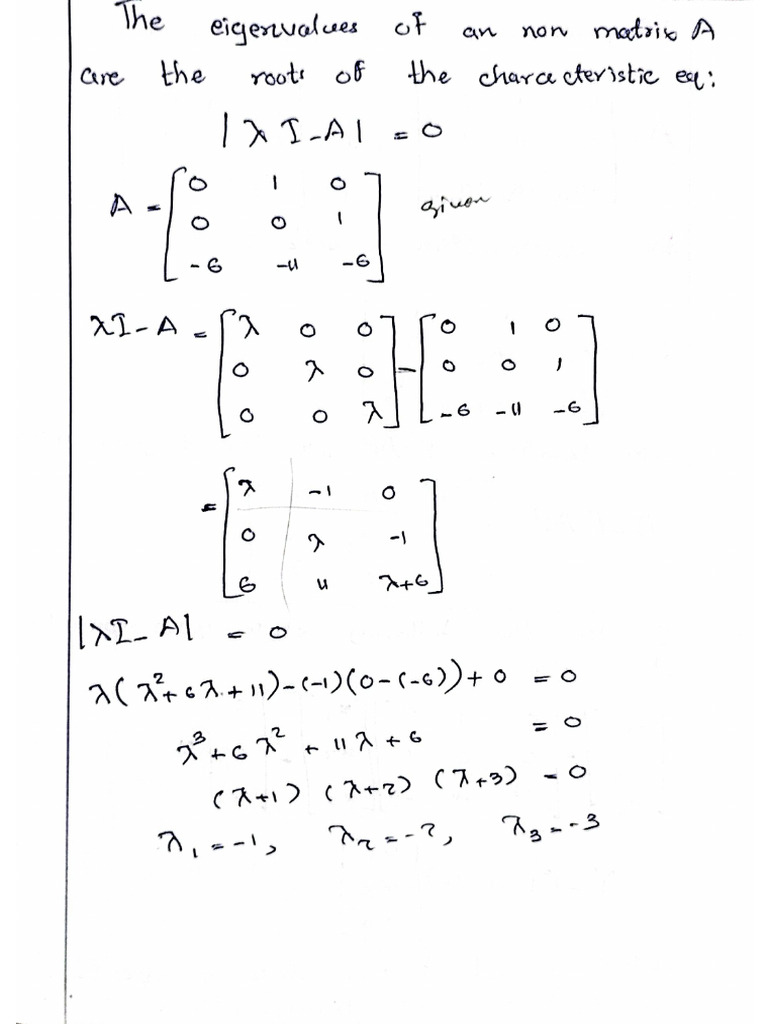 The eigenvalues of an non matrix A
are the roots of the characteristic eq:
|λI-A| = 0
A = [0 1 0 given
0 0 1
-6 -11 -6]
λI-A = [λ 0 0] - [0 1 0]
[0 λ 0] [0 0 1]
[0 0 λ] [-6 -11 -6]
= [λ -1 0
0 λ -1
6 11 λ+6]
|λI-A| = 0
λ(λ²+6λ+11)-(-1)(0-(-6))+0 = 0
λ³+6λ²+11λ+6 = 0
(λ+1) (λ+2) (λ+3) = 0
λ₁=-1, λ₂=-2, λ₃=-3